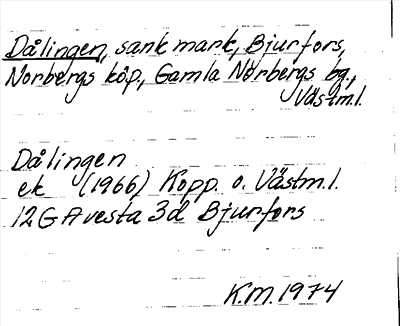 Dålingen, sank mark, Bjurfors,
Norbergs köp, Gamla Norbergs bg.,
Västm.l.
Dålingen
ek (1966) Kopp. o. Västm.l.
12G Avesta 3d Bjurfors
K.M. 1974